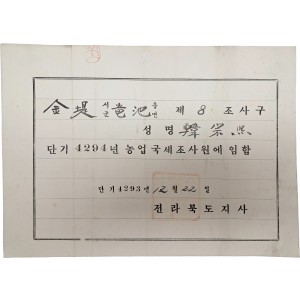 金堤 시군 竜池 읍면 제 8 조사구
성명 韓宗熙
단기 4294년 농업국세조사원에 임함
단기 4293년 12월 22일
전라북도지사